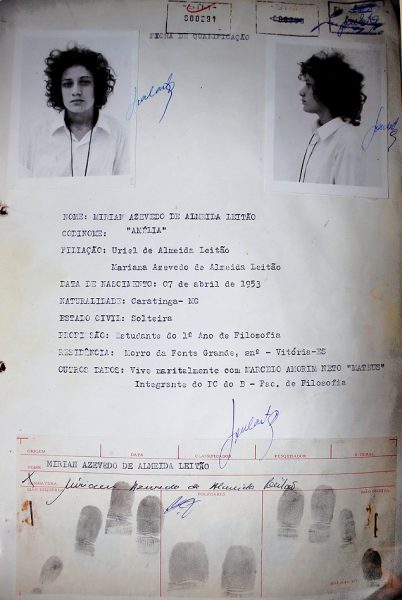 000291
FICHA DE QUALIFICAÇÃO
NOME: MIRIAN AZEVEDO DE ALMEIDA LEITÃO
CODINOME: "AMÉLIA"
FILIAÇÃO: Uriel de Almeida Leitão
Mariana Azevedo de Almeida Leitão
DATA DE NASCIMENTO: 07 de abril de 1953
NATURALIDADE: Caratinga- MG
ESTADO CIVIL: Solteira
PROFISSÃO: Estudante do 1º Ano de Filosofia
RESIDÊNCIA: Morro da Fonte Grande, snº - Vitória-ES
OUTROS DADOS: Vive maritalmente com MARCELO AMORIM NETO "MATEUS"
Integrante do PC do B - Fac. de Filosofia
ORIGEM DATA CLASSIFICADOR PESQUISADOR
NOME: MIRIAN AZEVEDO DE ALMEIDA LEITÃO
X Miriam Azevedo de Almeida Leitão
POLEGARES